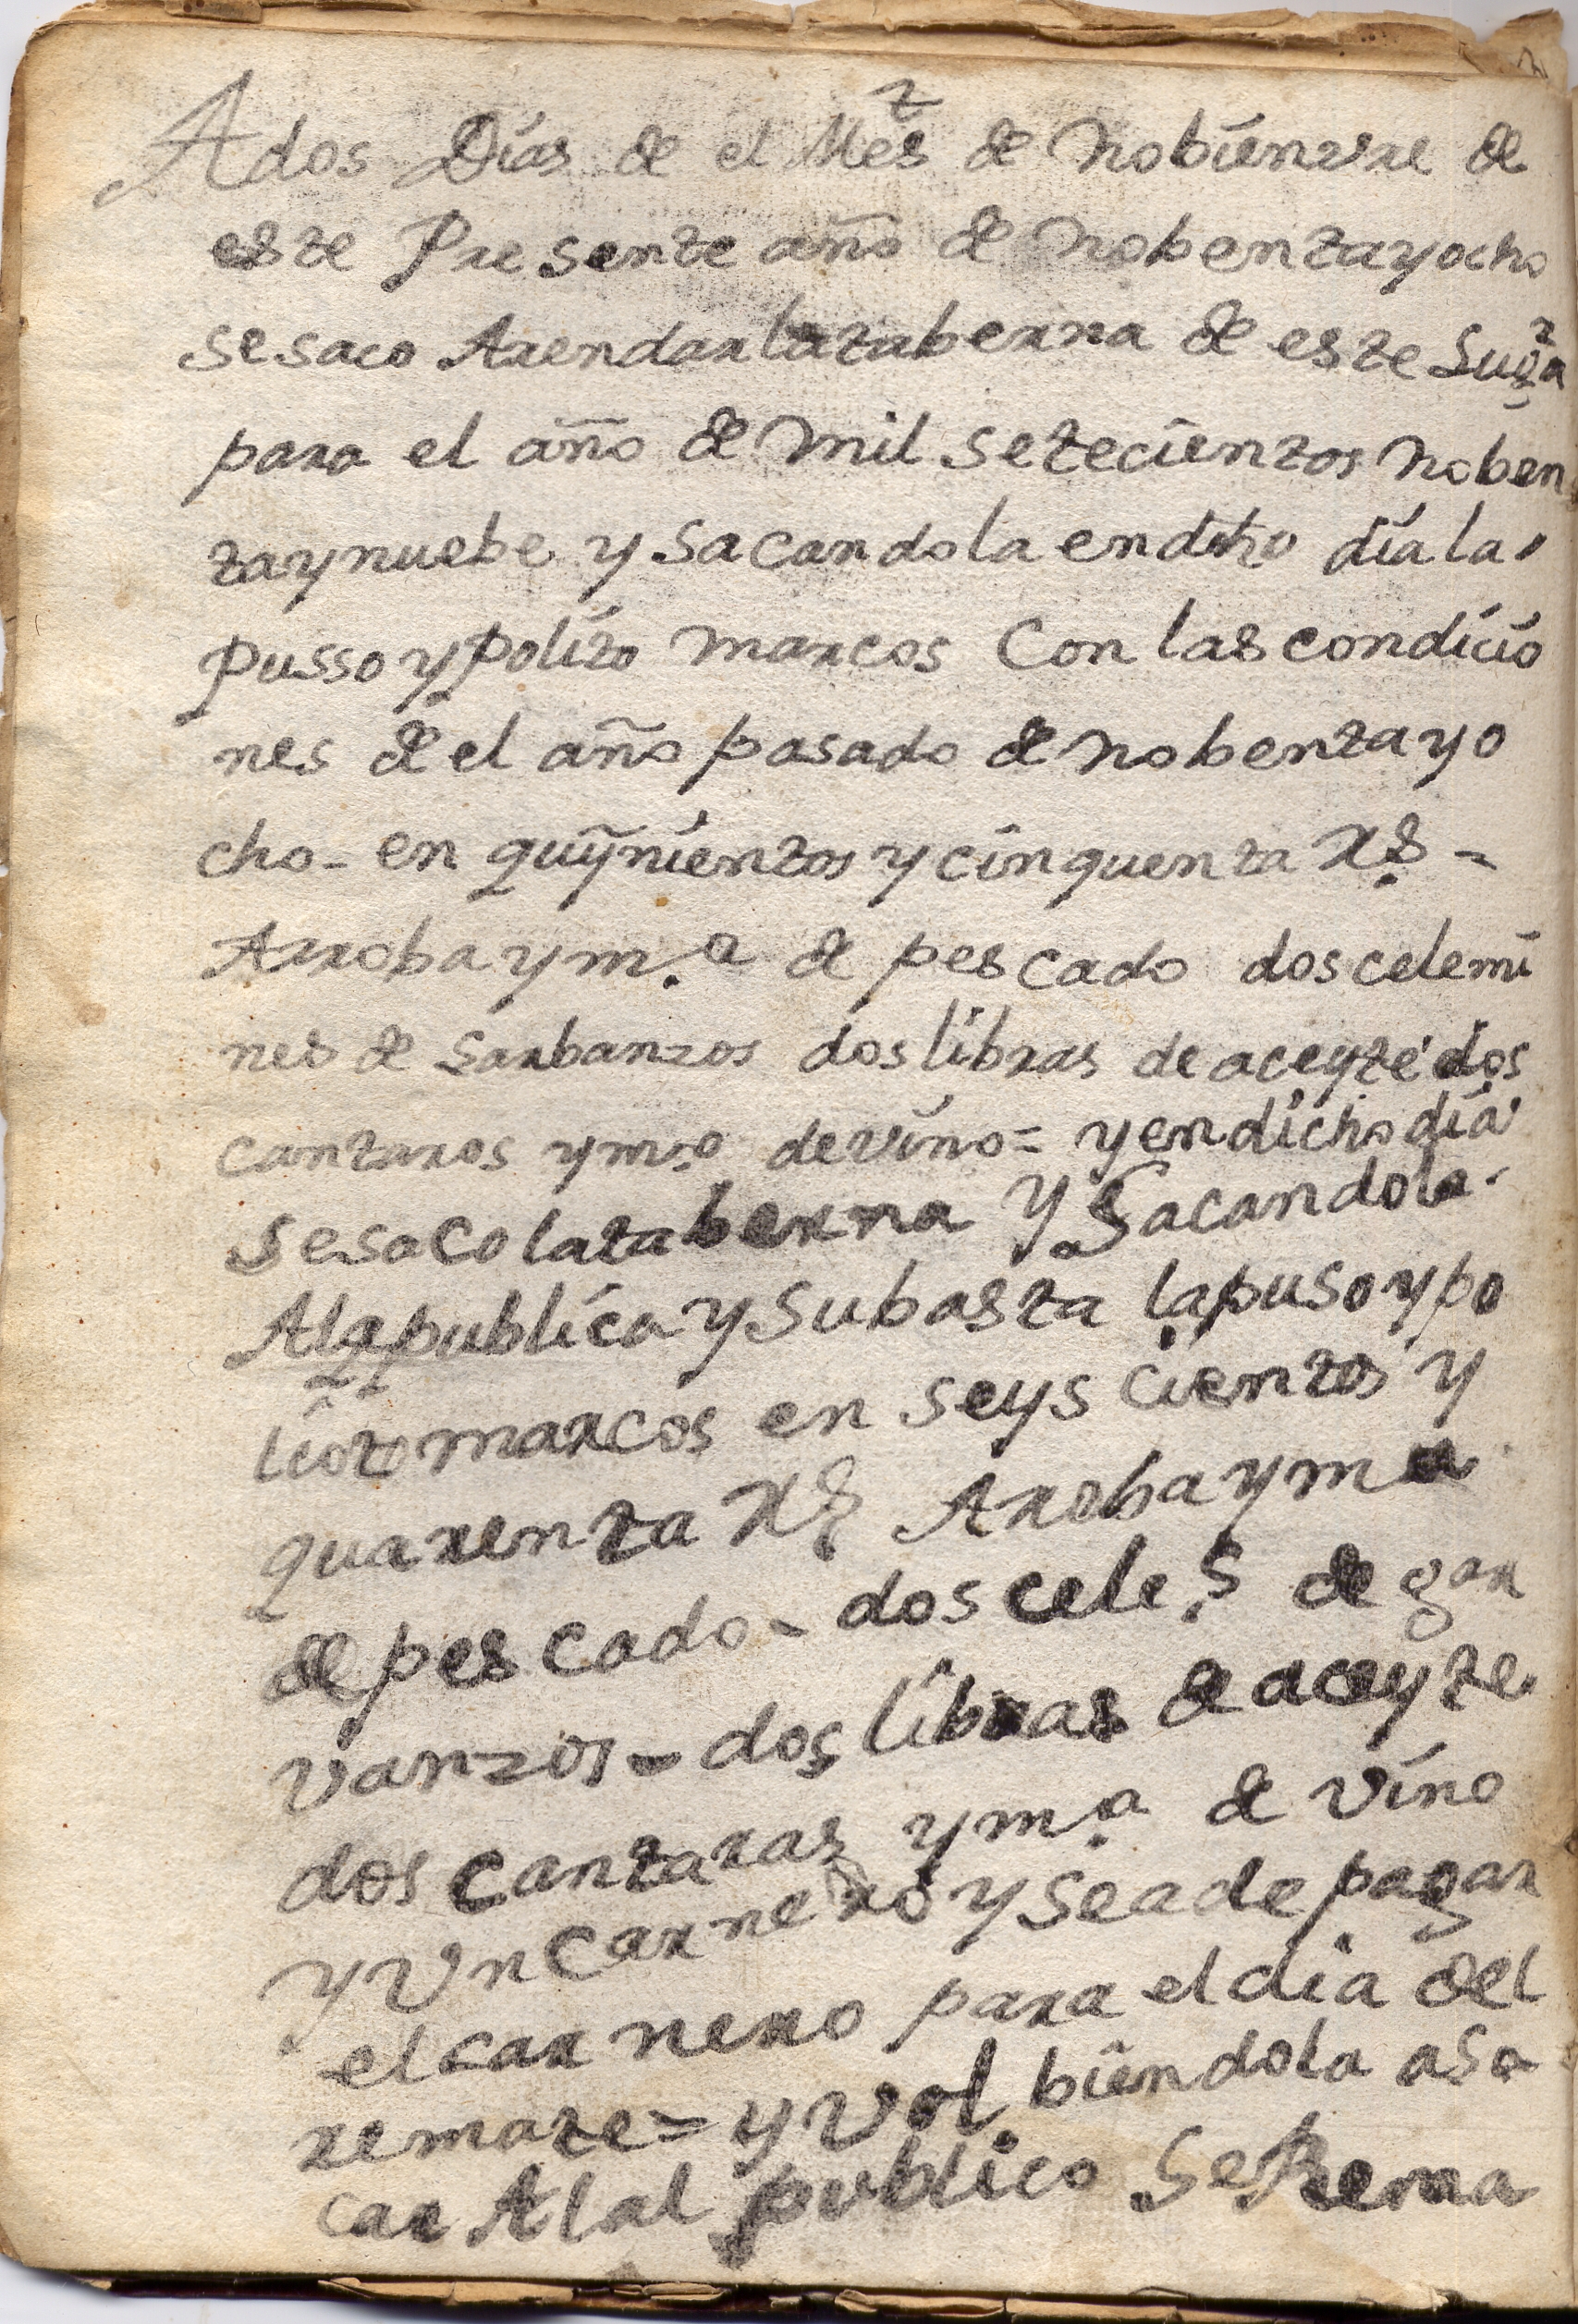 A dos Días de el Mes de Nobienvre de
este Presente año de Nobentayocho
sesaco Arendar lataberna de este Lugr
para el año de mil setecientos Noben
taynuebe y sacandola en dcho día la
pusso y Polito marcos Con las condicio
nes de el año pasado de nobentayo
cho - en quynientos y cinquenta Rs =
Arroba y m.a de pescado dos celemi
nes de Garbanzos dos libras de aceyte dos
cantaros y m.o de vino = y en dicho día
sesaco lataberna y Sacandola
Ala publica y Subasta lapuso y po
lito marcos en seys cientos y
quarenta Rs Aroba y ma
de pescado - dos cele.s de gar
vanzos - dos libras de aceyte
dos cantaras y m.a de vino
y Vn Carnero y Seade pagar
el carnero para el dia del
remate = y Vol biendola asa
car Alal publico Se Rema